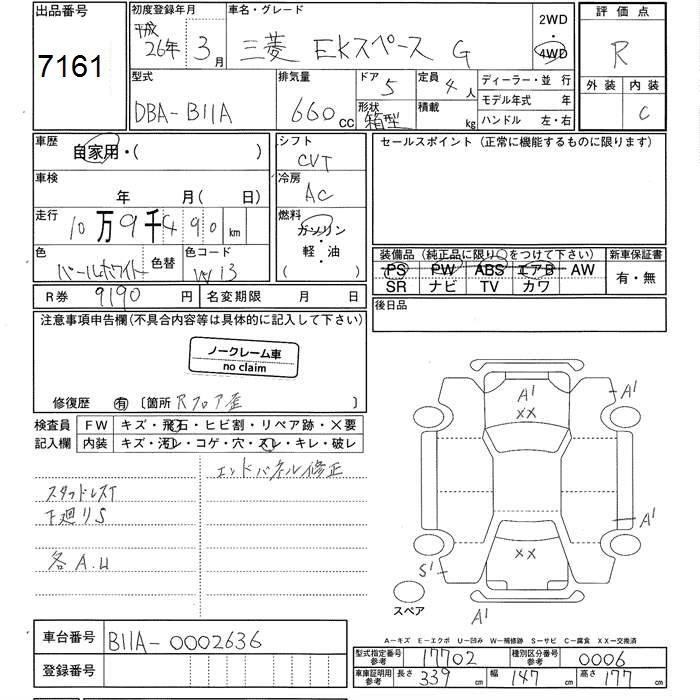 出品番号
7161
初度登録年月
平成 26年 3月
車名・グレード
三菱 EKスペース G
2WD
・
4WD
評価点
R
外装 内装
C
型式
DBA-B11A
排気量
660 cc
ドア
5
形状
箱型
定員
4人
積載
kg
ディーラー・並 行
モデル年式 年
ハンドル 左・右
車歴
自家用・( )
車検
年 月(日)
走行
10万9千490 km
色
パールホワイト
色替
色コード
W13
シフト
CVT
冷房
AC
燃料
ガソリン
・
軽・油
( )
セールスポイント (正常に機能するものに限ります)
装備品 (純正品に限り○をつけて下さい)
新車保証書
PS PW ABS エアB AW
SR ナビ TV カワ
有・無
R券 9190 円
名変期限 月 日
後日品
注意事項申告欄(不具合内容等は具体的に記入して下さい)
ノークレーム車
no claim
修復歴 有 〔箇所 Rフロア歪 〕
検査員 FW キズ・飛石・ヒビ割・リペア跡・×要
記入欄 内装 キズ・汚レ・コゲ・穴・スレ・キレ・破レ
エンドパネル修正
スタッドレスT
下廻りS
各A.U
A1
××
A1
A1
××
S1
スペア
A1
A-キズ E-エクボ U-凹み W-補修跡 S-サビ C-腐食 XX-交換済
車台番号 B11A-0002636
登録番号
型式指定番号
参考
17702
種別区分番号
参考
0006
車庫証明用
参考
長さ 339 cm 幅 147 cm 高さ 177 cm